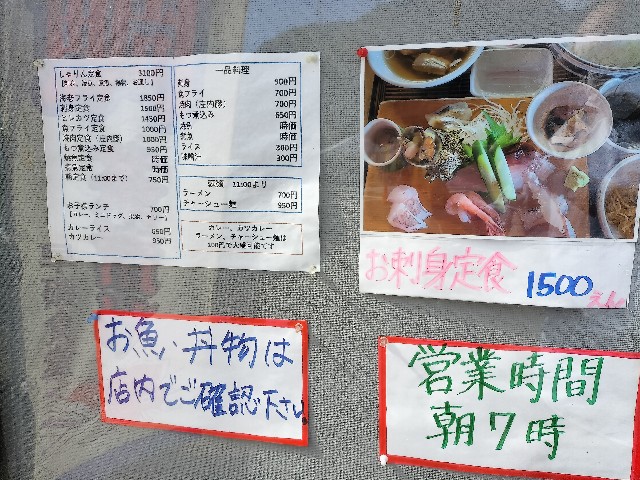 しゃりん定食 3100円
海老フライ定食 1850円
刺身定食 1500円
とんカツ定食 1450円
魚フライ定食 1000円
焼肉定食（庄内豚） 1000円
もつ煮込み定食 950円
焼魚定食 時価
煮魚定食 時価
朝定食（11:00まで） 750円
お子様ランチ 700円
カレーライス 850円
カツカレー 950円
一品料理
刺身 900円
魚フライ 700円
焼肉（庄内豚） 700円
もつ煮込み 650円
焼魚 時価
煮魚 時価
ライス 300円
味噌汁 300円
11:00より
ラーメン 700円
チャーシュー麺 950円
カレー、カツカレー
ラーメン、チャーシュー麺は
100円で大盛可能です
お刺身定食 1500えん
お魚、丼物は
店内でご確認下さい。
営業時間
朝7時